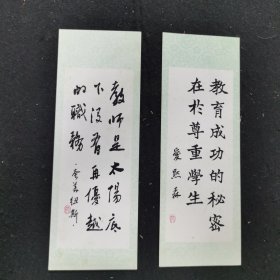 教育成功的秘密
在於尊重學生
愛默森
教師是太陽底
下沒有再優越
的職務
·夸美紐斯·